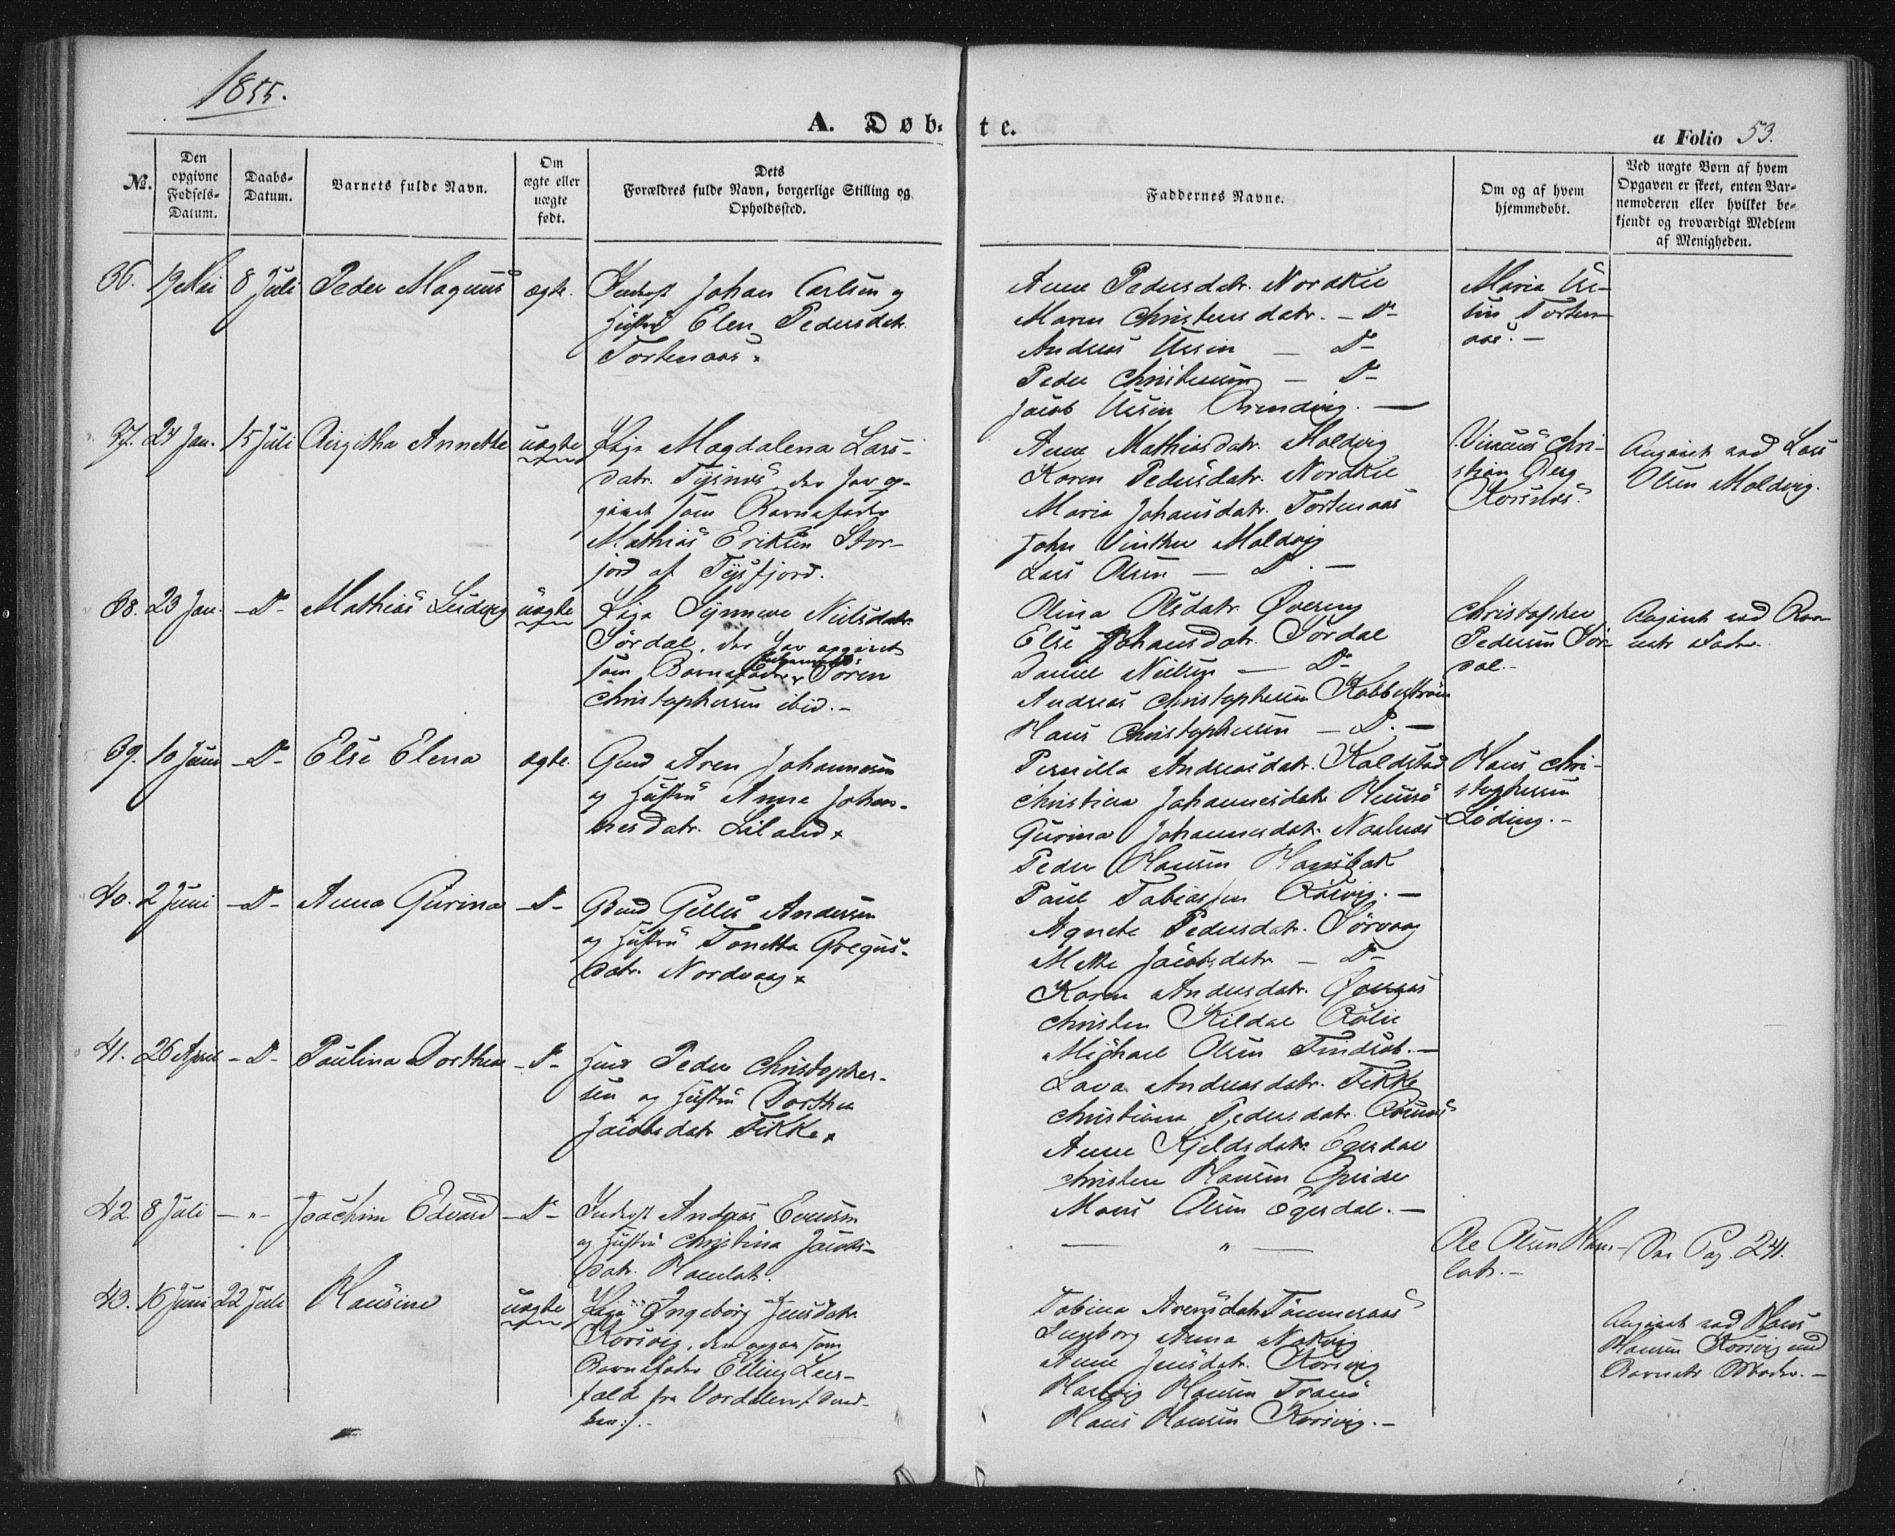 1855.
A. Døb-
te.
a Folio 53.
No.
Den
opgivne
Fødsels-
Datum.
Daabs-
Datum.
Barnets fulde Navn.
Om
ægte eller
uægte
født.
Dets
Forældres fulde Navn, borgerlige Stilling og
Opholdssted.
Faddernes Navne.
Om og af hvem
hjemmedøbt.
Ved uægte Børn af hvem
Opgaven er skeet, enten Bar-
nemoderen eller hvilket be-
kjendt og troværdigt Medlem
af Menigheden.
36. 19 Mai 8 Juli Peder Magnus ægte. Inderst Johan Carlsen og
Hustru Elen Pedersdatr.
Tortenaas
Anne Pedersdatr. Nordkil
Maren Christensdatr. - Do
Andreas Ursin - Do
Peder Christensen - Do
Jacob Ursin
Maria Ur-
sin Torten-
aas. -
37. 24 Jan. 15 Juli Birgitha Annette uægte Pige Magdalena Lars-
datr. Tysnes, der har op-
givet som Barnefader
Mathias Eriksen Stor-
jord af Tysfjord.
Anne Mathisdatr. Moldvig
Karen Pedersdatr. Nordkil
Maria Johansdatr. Tortenaas
John Vinther Moldvig
Lars Olsen - Do. -
Chri-
stian Berg
Korsnes.
Angivet ved Lars
Olsen Moldvig.
38. 23 Jan. - Do - Mathias Ludvig uægte Pige Synneve Nielsdatr.
Sørdal, der har opgivet
som Barnefader Søren
Christophersen ibid. -
Olina Olsdatr.
Else Johansdatr. Sørdal
Daniel Nielsen - Do
Andreas Christophersen Kobbestrøm
Hans Christophersen - Do. -
Christopher
Pedersen Sør-
dal. -
Angivet ved Bar-
nets Fader.
39. 10 Juni - Do - Else Elena ægte. Gmd Aren Johannesen
og Hustru Anne Johan-
nesdatr. Liland
Pernilla Andreasdatr. Koldstad
Christina Johannesdatr.
Gurina Johannesdatr.
Peder Hansen Hansbak
Paul Tobiassen
Hans Chri-
stophersen
Løding. -
40. 2 Juni - Do - Anna Gurina - Do - Gmd Andersen
og Hustru Tonetta Gregus-
datr. Nordvaag
Agnete Pedersdatr. Sørvaag
Mette Jacobsdatr - Do
Karen Andersdatr.
Christen Kildal
Michael Olsen
41. 26 April - Do - Paulina Dorthea - Do - Huus Peder Christopher-
sen og Hustru Dorthea
Jacobsdatr Fikke
Lava Andreasdatr. Fikke
Christiana Pedersdatr.
Anne Kjeldsdatr. Egerdal
Christen Hansen
Mons Olsen Egerdal. -
42. 8 Juli - " - Joachim Edvard - Do - Inderst Andreas Evensen
og Hustru Christina Jacobs-
datr.
- " -
Ole Olsen
See Pag. 241.
43. 16 Juni 22 Juli Hansine uægte Pige Ingeborg Jensdatr.
Korsvig, der opgav som
Barnefader Elling Leer-
fald fra Værdalen
Tobina Arensdatr
Ingeborg Anna
Anne Jensdatr. Korsvig
Hartvig Hansen Tranø
Hans Hansen Korsvig. -
Angivet ved Hans
Hansen Korsvig og
Barnets Moder. -